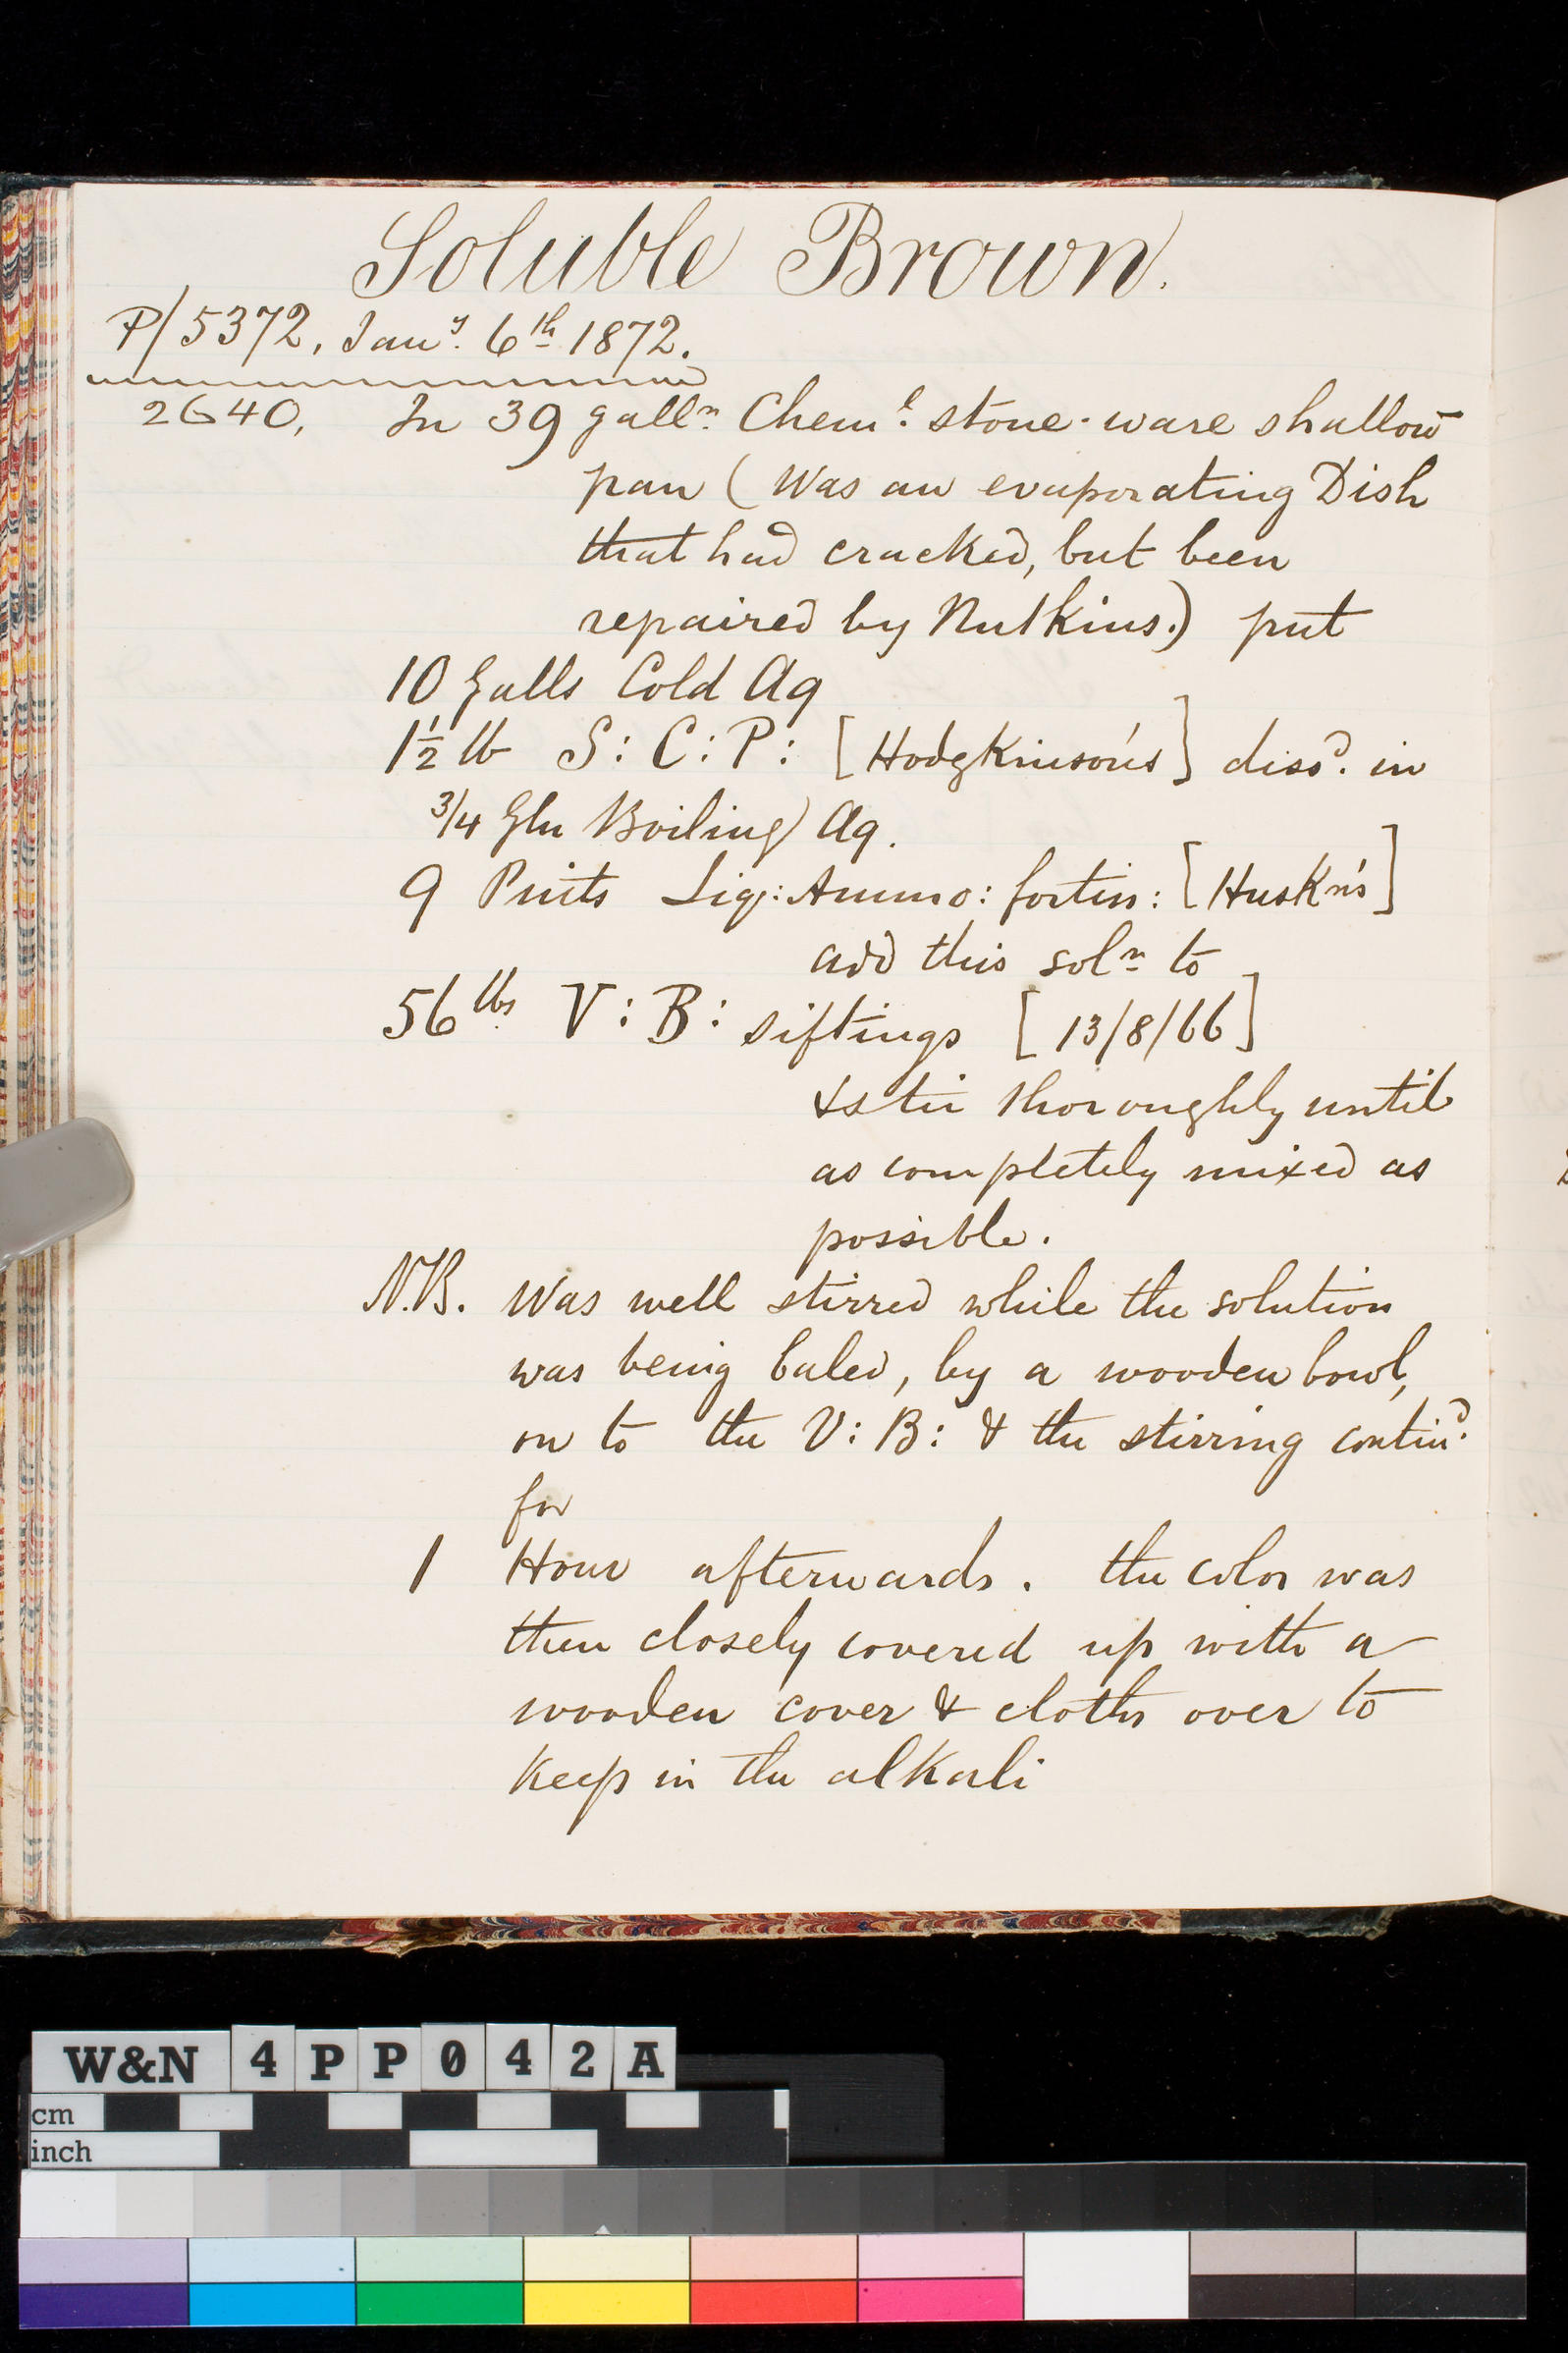 Soluble Brown.
P/5372, Jany. 6th 1872.
2640, In 39 galln. Cheml. stone-ware shallow
pan (Was an evaporating Dish
that had cracked, but been
repaired by Nutkins.) put
10 Galls Cold Aq
1½ lb S: C: P: [Hodgkinson's] dissd. in
3/4 Gln Boiling Aq.
9 Pints Liq: Ammo: fortiss: [Huskn's]
add this soln to
56 lbs. V: B: siftings [13/8/66]
& stir thoroughly until
as completely mixed as
possible.
N.B. Was well stirred while the solution
was being baled, by a wooden bowl,
on to the V: B: & the stirring contind.
for
1 Hour afterwards. the color was
then closely covered up with a
wooden cover & cloths over to
keep in the alkali
W&N 4PP042A
cm
inch